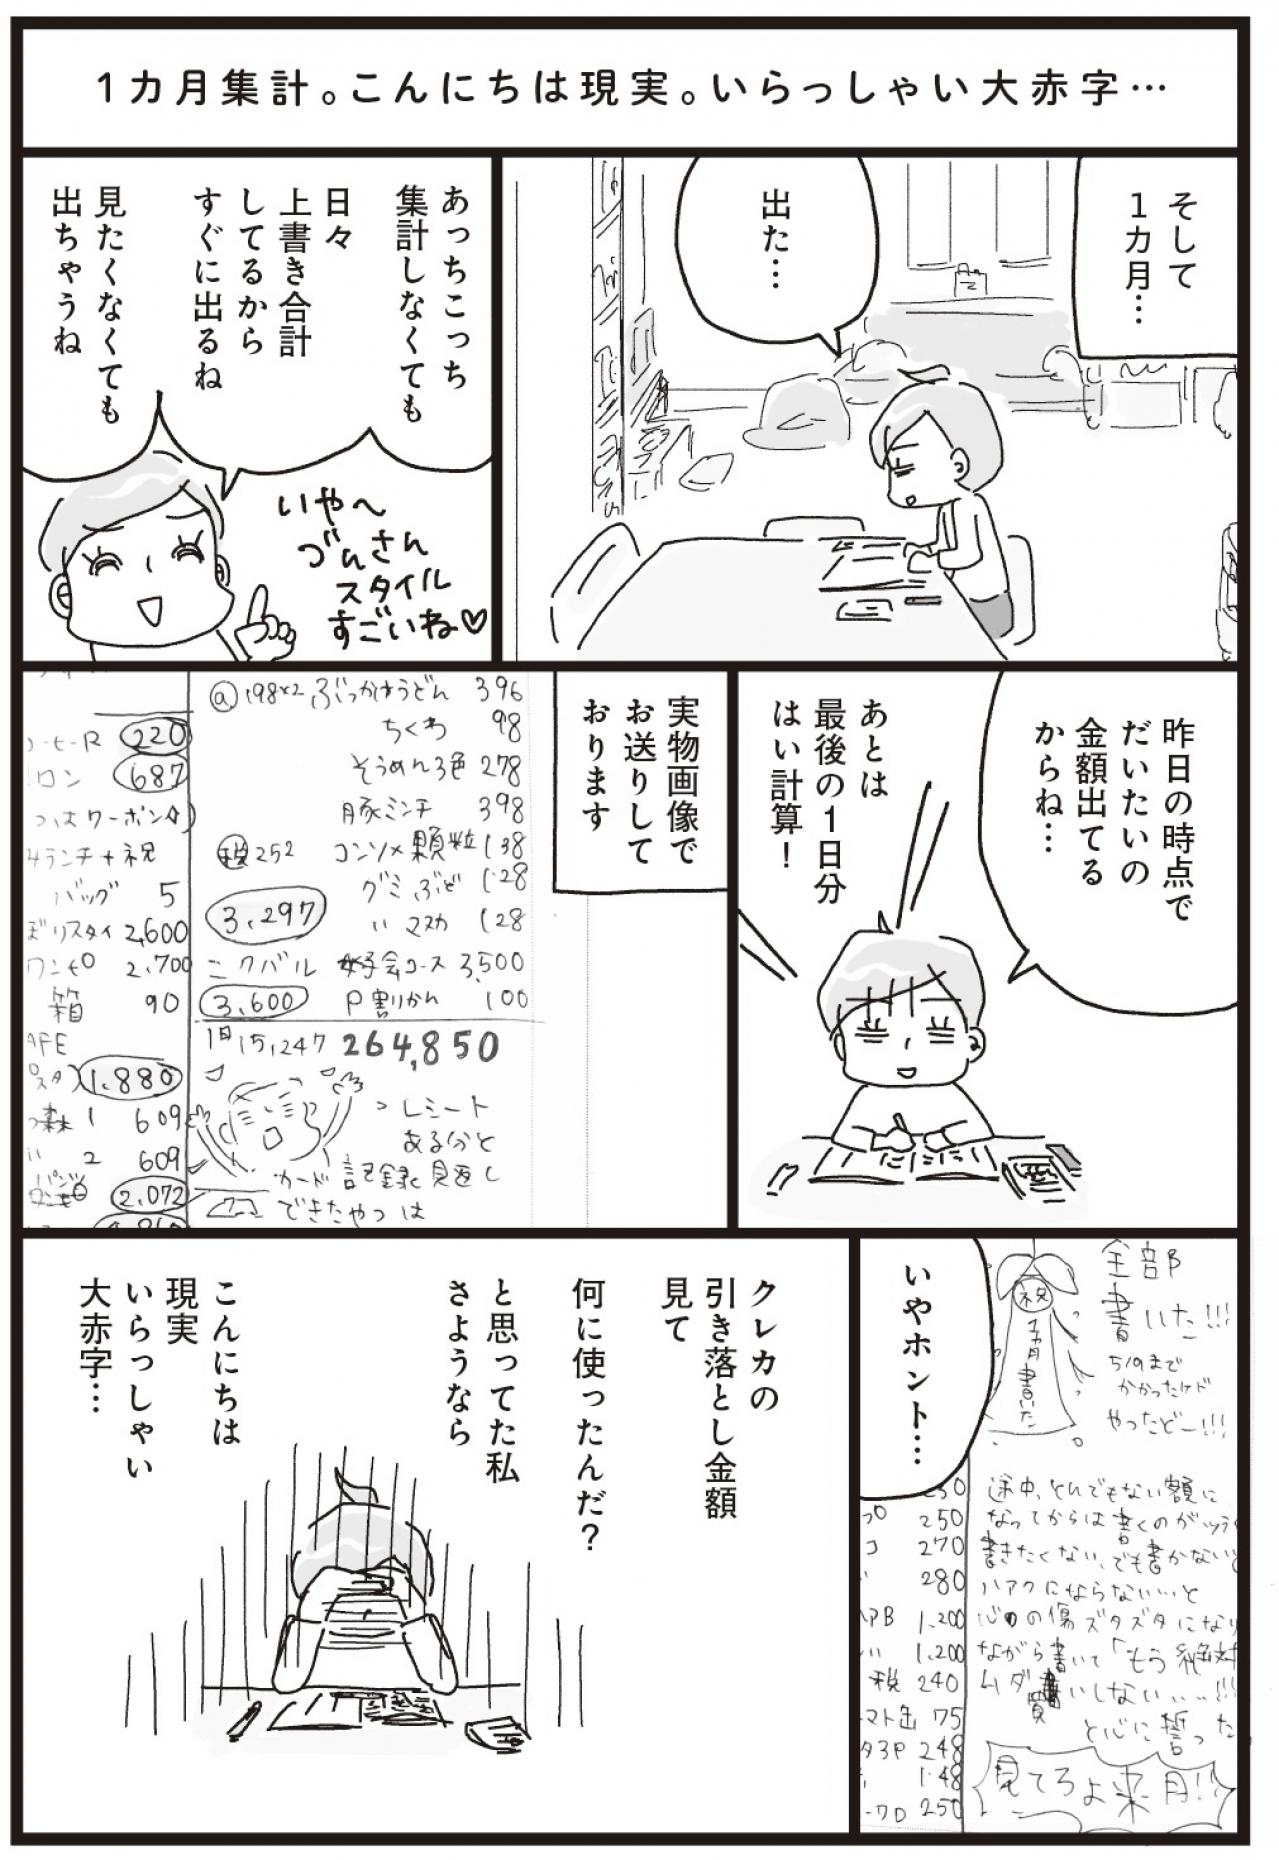 1カ月集計。こんにちは現実。いらっしゃい大赤字…
そして
1カ月…
出た…
あっちこっち
集計しなくても
日々
上書き合計
してるから
すぐに出るね
見たくなくても
出ちゃうね
いや〜
づんさん
スタイル
すごいね♡
昨日の時点で
だいたいの
金額出てる
からね…
あとは
最後の1日分
はい計算!
実物画像で
お送りして
おります
@198×2 ぶっかけうどん 396
ちくわ 98
そうめん3色 278
豚ミンチ 398
税252 コンソメ顆粒 138
グミぶど 128
〃 マスカ 128
3,297
ニクバル 女子会コース 3,500
3,600 P割りかん 100
1日15,247 264,850
レシート
ある分と
カード記録見返し
できたやつは
220
687
クーポン
ランチ+祝
バッグ 5
2,600
2,700
箱 90
1,880
1 609
2 609
2,072
全部
書いた!!!
5/9まで
かかったけど
やったどー!!!
祝
1カ月書いた
途中、とんでもない額に
なってからは書くのがツラく
書きたくない、でも書かないと
ハアクにならない…と
心の傷ズタズタになり
ながら書いて「もう絶対
ムダ買いしない…!!!
と心に誓った
見てろよ来月!!
250
270
280
1,200
1,200
税 240
マト缶 75
248
148
250
いやホント…
クレカの
引き落とし金額
見て
何に使ったんだ?
と思ってた私
さようなら
こんにちは
現実
いらっしゃい
大赤字…